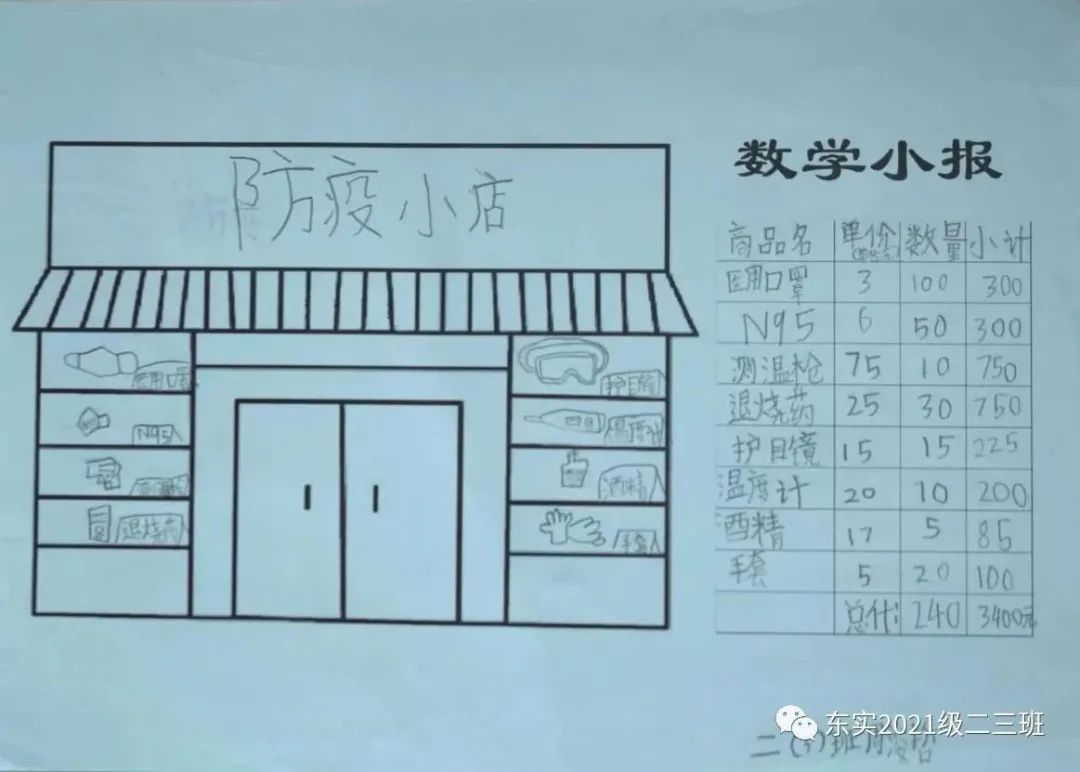 防疫小店
数学小报
商品名 单价 数量 小计
医用口罩 3 100 300
N95 6 50 300
测温枪 75 10 750
退烧药 25 30 750
护目镜 15 15 225
温度计 20 10 200
酒精 17 5 85
手套 5 20 100
总计: 240 3400元
医用口罩
N95
退烧药
护目镜
温度计
酒精
手套
东实2021级二三班